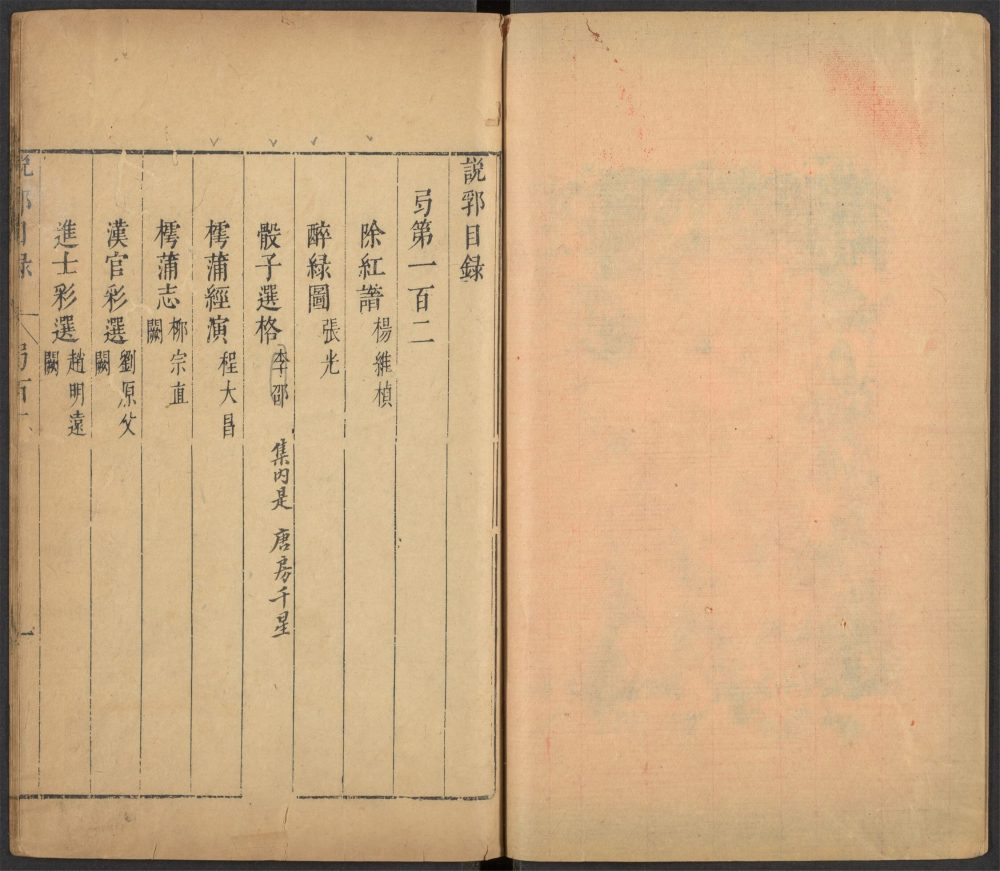 說郛目録
弓第一百二
除紅譜 楊維楨
醉緑圖 張光
骰子選格 李郃 集内是 唐房千星
樗蒲經演 程大昌
樗蒲志 柳宗直 闕
漢官彩選 劉原父 闕
進士彩選 趙明遠 闕
說郛目録 弓百二 一